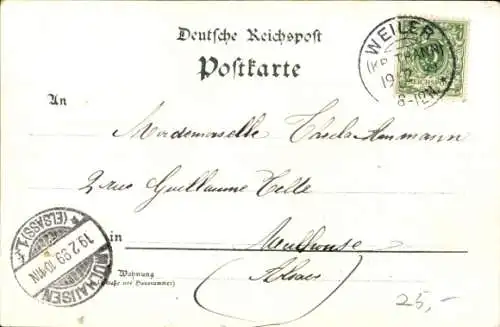 Deutsche Reichspost
Postkarte
WEILER
(KR. THANN)
19 2
8-10N.
An
Mademoiselle Ammann
2 rue Guillaume Telle
in Mulhouse
(Alsace)
MÜLHAUSEN
19.2.99.10-11N
*(ELSASS)1.*
Wohnung
(Straße und Hausnummer)
25,-